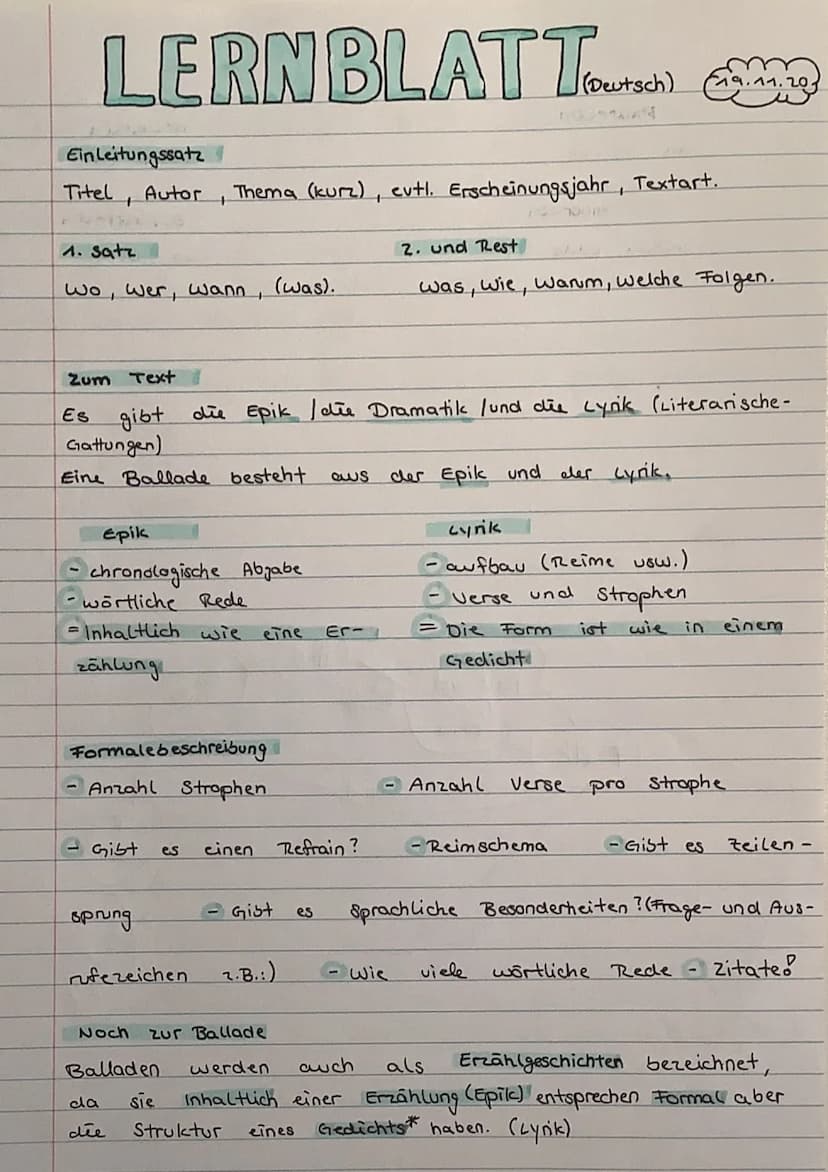 LERNBLATT (Deutsch) 19.11.20
Einleitungssatz
Titel, Autor, Thema (kurz), evtl. Erscheinungsjahr, Textart.
1. Satz
2. und Rest
Wo, wer, wann, (was).
was, wie, warum, welche Folgen.
Zum Text
Es gibt die Epik / die Dramatik / und die Lyrik (Literarische-
Gattungen)
Eine Ballade besteht aus der Epik und der Lyrik.
Epik
- chronologische Abgabe
- wörtliche Rede
= Inhaltlich wie eine Er-
zählung
Lyrik
- aufbau (Reime usw.)
- Verse und Strophen
= Die Form ist wie in einem
Gedicht
Formalebeschreibung
- Anzahl Strophen - Anzahl Verse pro Strophe
- Gibt es einen Refrain? - Reimschema - Gibt es Zeilen-
sprung - Gibt es sprachliche Besonderheiten? (Frage- und Aus-
rufezeichen z.B.:) - Wie viele wörtliche Rede - Zitate!
Noch zur Ballade
Balladen werden auch als Erzählgeschichten bezeichnet,
da sie Inhaltlich einer Erzählung (Epik) entsprechen Formal aber
die Struktur eines Gedichts* haben. (Lyrik)